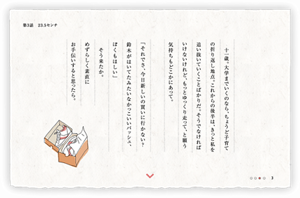 第3話 22.5センチ
十一歳。大学まででいくのなら、ちょうど子育て
の折り返し地点。これからの後半は、きっと私を
追い抜いていくことばかりだ。そうでなければ
いけないけれど、もっとゆっくり走って、と願う
気持ちもどこかにあって。
「それでさ、今日新しいの買いに行かない？
鈴木がはいてたみたいなかっこいいバッシュ、
ぼくもほしい」
そう来たか。
めずらしく素直に
お手伝いすると思ったら。
3